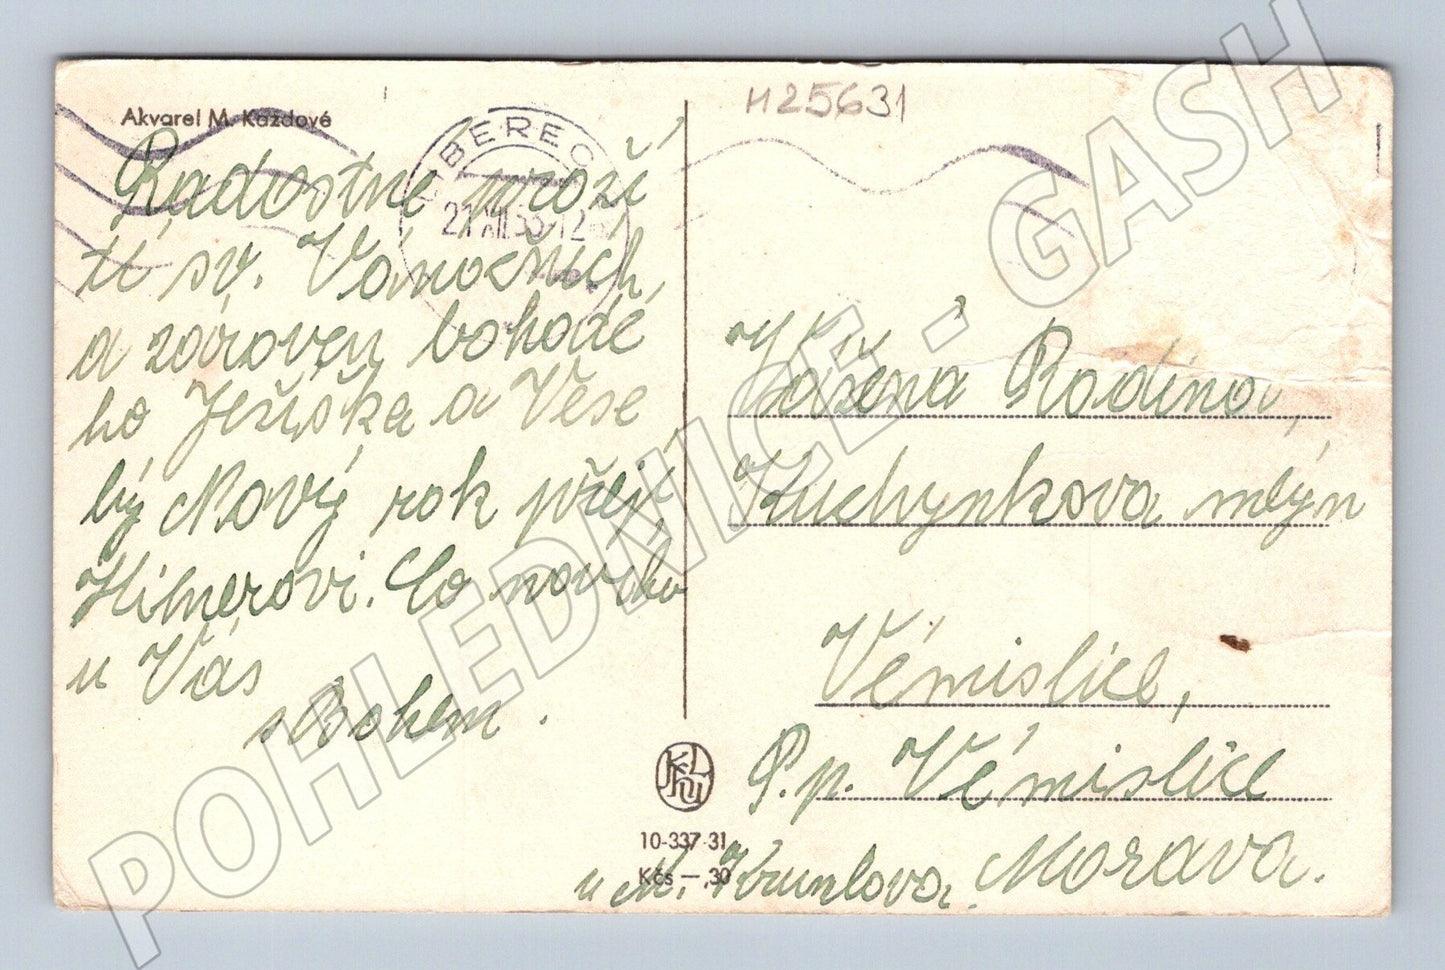 Akvarel M. Každové
H25631
BEREC
21.XII.53-12
Radostné proži
tí sv. Vánočních
a zároven bohaté
ho Ježiška a Vese
lý Nový rok přeji
Hilnerovi. Co nového
u Vás
s Bohem.
Vážená Rodina,
Kuchynkova mlýn
Vémislice,
P.p. Vémislice
u M. Krumlova. Morava.
10-337-31
Kčs —,30
POHLEDNICE - GASH